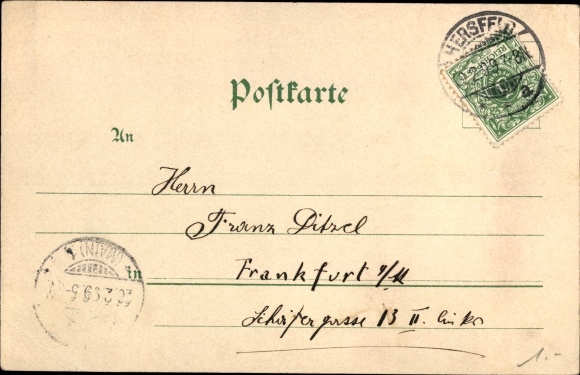 HERSFELD
Postkarte
An
Herrn
Franz Ditzel
in Frankfurt a/M
Schäfergasse 13 II. links
(MAIN)
1.-